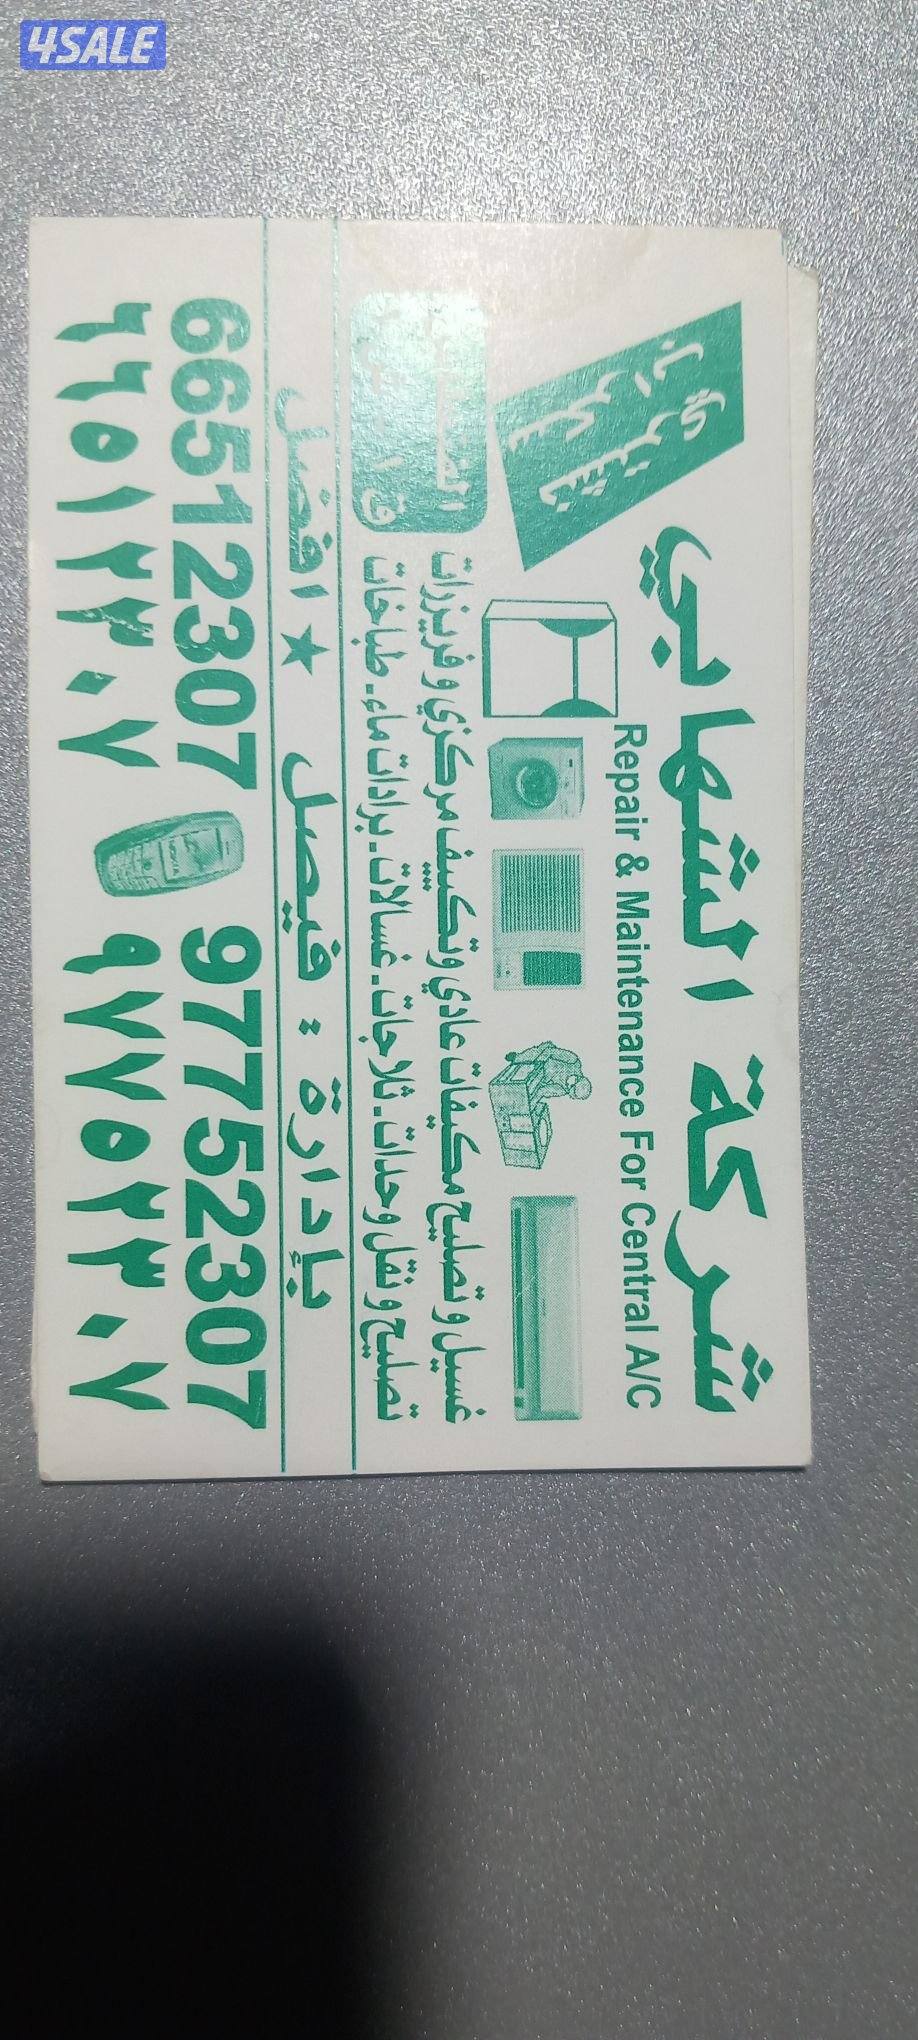 4SALE
شركة الشهابي
Repair & Maintenance For Central A/C
نشتري
سكراب
غسيل وتصليح مكيفات عادي وتكييف مركزي و فريزرات
تصليح ونقل وحدات - ثلاجات - غسالات - برادات ماء - طباخات
بإدارة : فيصل ★ افضل
97752307 66512307
٩٧٧٥٢٣٠٧ ٦٦٥١٢٣٠٧